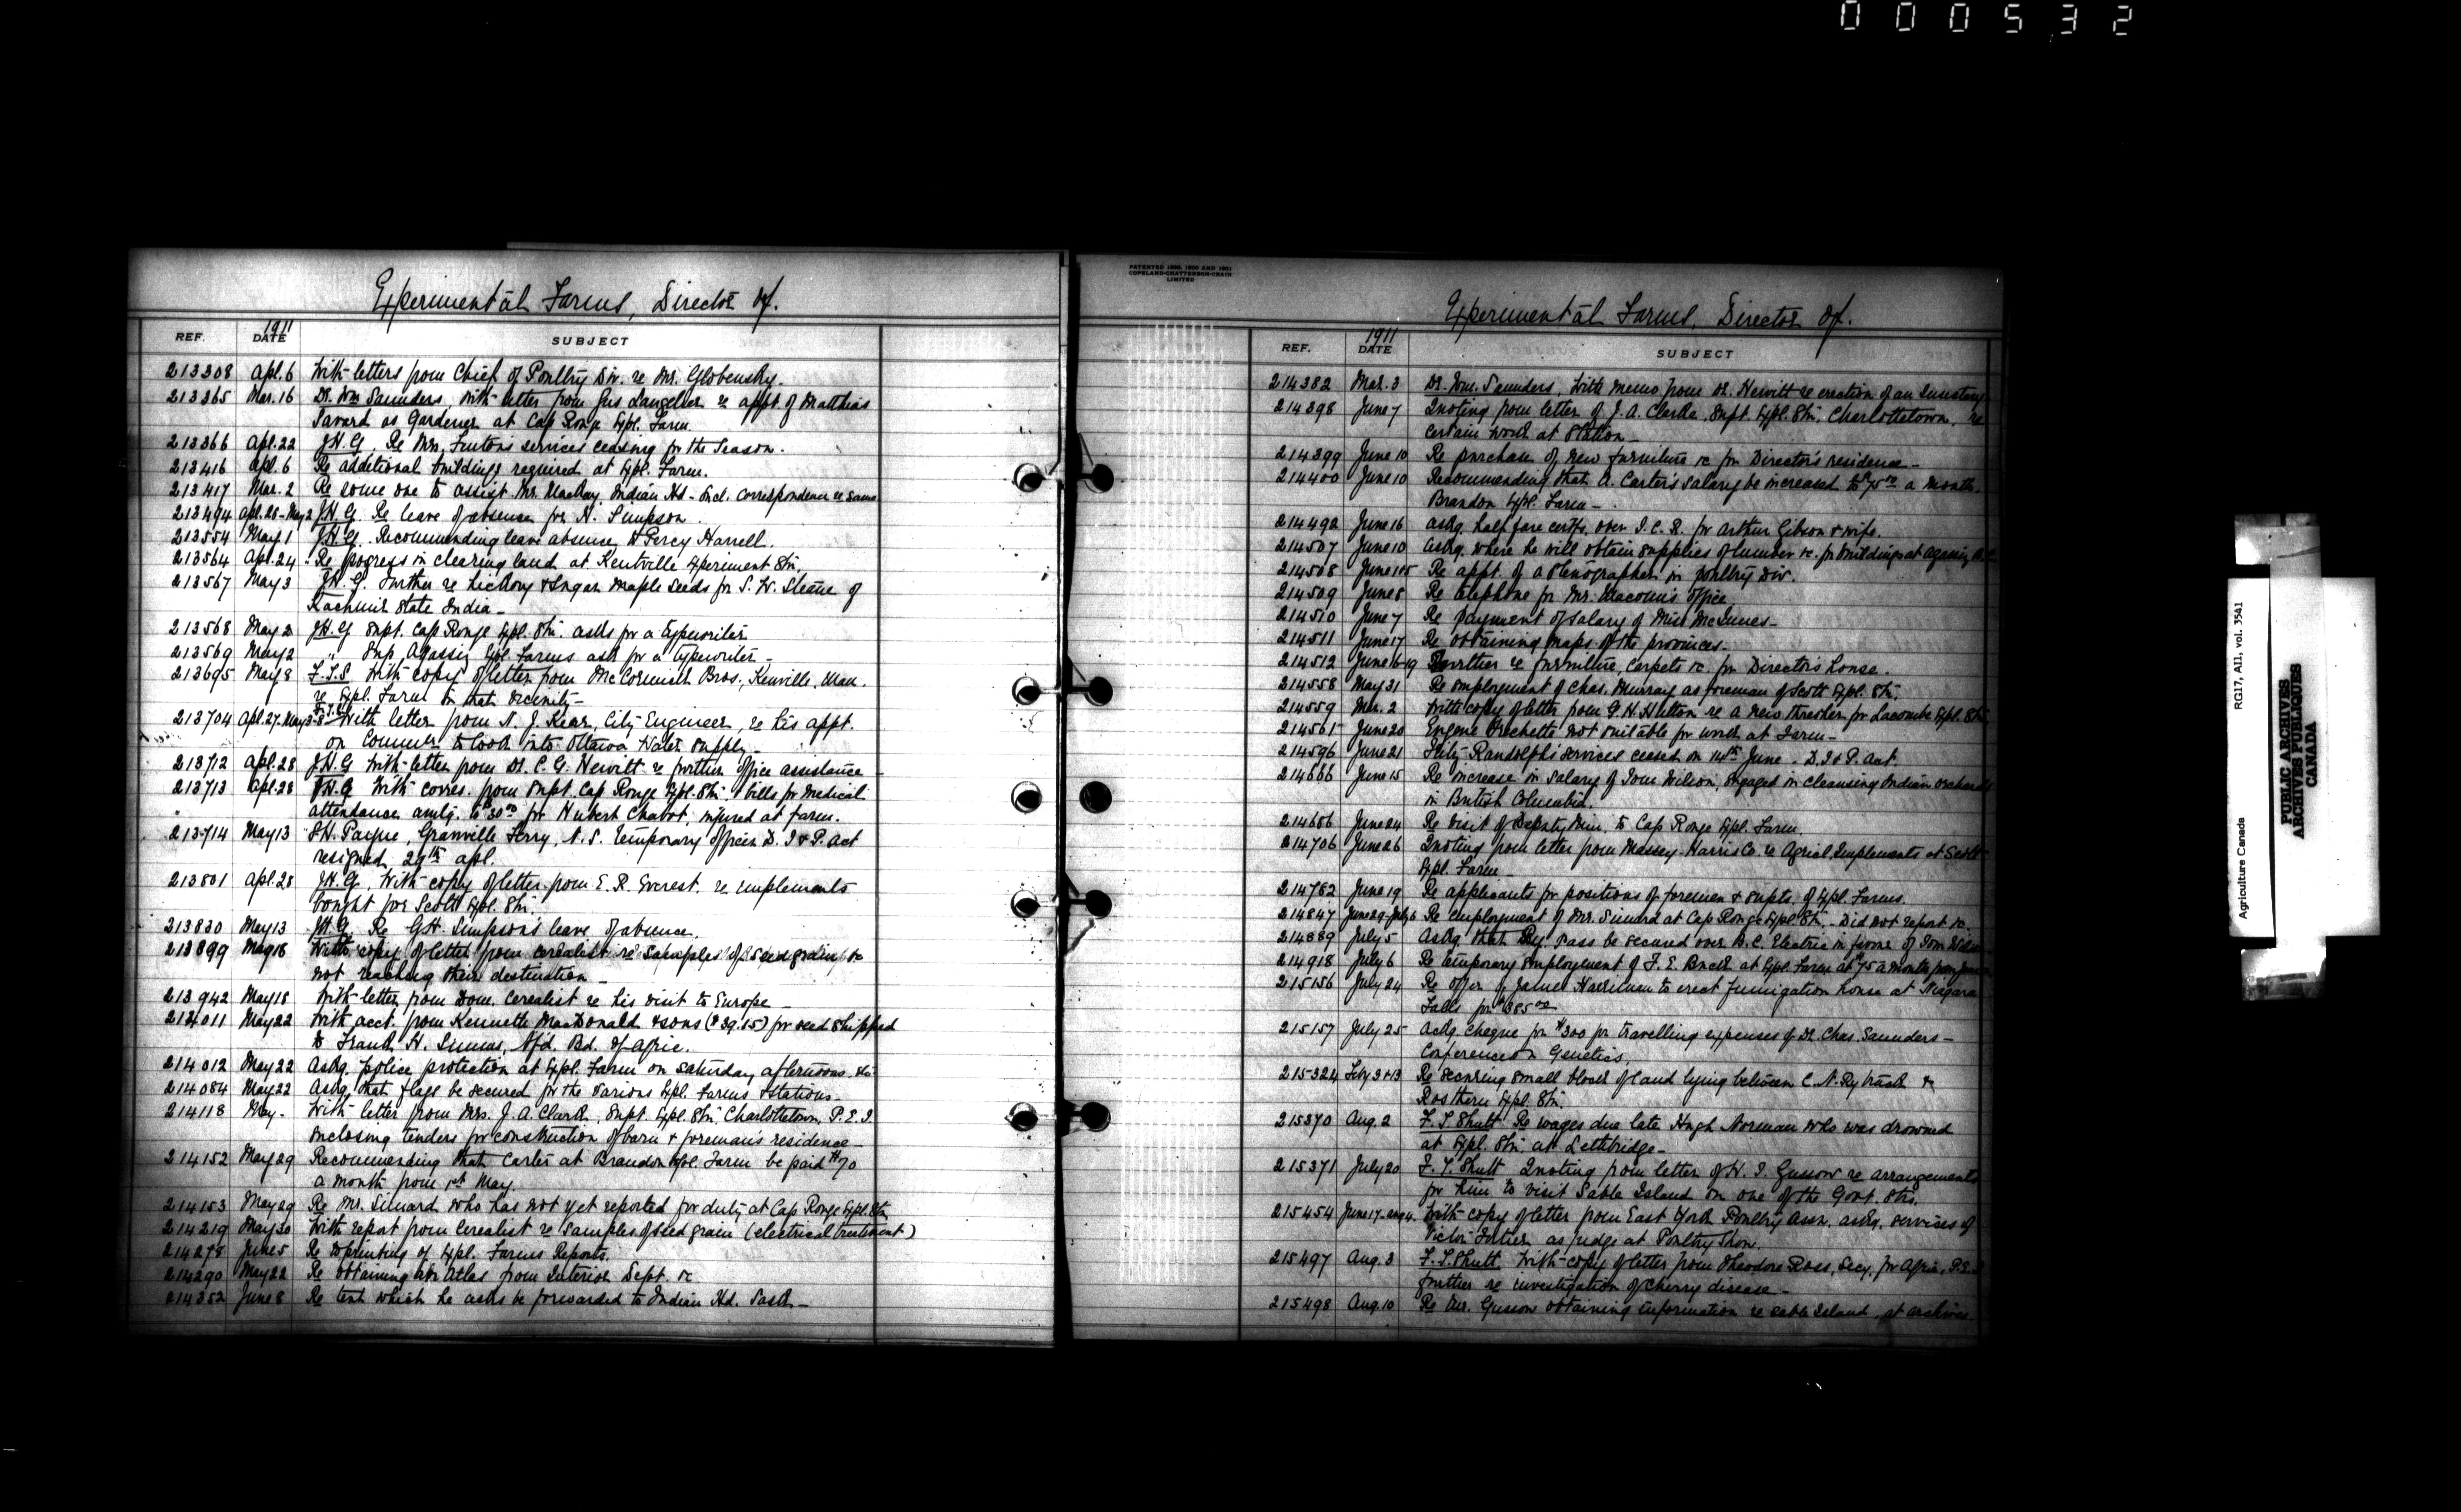 000532
Experimental Farms, Director of.
1911
REF. DATE SUBJECT
213308 Apl. 6 With letters from Chief of Poultry Div. re Mr. Globensky.
213365 Mar. 16 Dr. Wm Saunders, With letter from Gus Langelier re appt. of Matthias
Savard as Gardener at Cap Rouge Expl. Farm.
213366 Apl. 22 J.H.G. Re Mrs. Fenton's services ceasing for the Season.
213416 Apl. 6 Re additional buildings required at Expl. Farm.
213417 Mar. 2 Re some one to assist Mr. MacKay, Indian Hd - Incl. correspondence re same
213494 Apl. 28-May 2 J.H.G. Re leave of absence for H. Simpson.
213554 May 1 J.H.G. Recommending leave absence to Percy Harrell.
213564 Apl. 24 Re progress in clearing land at Kentville Experiment Stn.
213567 May 3 J.H.G. Further re hickory & Sugar Maple Seeds for S. W. Sleane of
Kachmir State India -
213568 May 2 J.H.G Supt. Cap Rouge Expl. Stn. asks for a typewriter
213569 May 2 " Sup. Agassiz Expl. Farms ask for a typewriter -
213695 May 8 F.T.S With copy of letter from McCormick Bros., Kenville, Man.
re Expl. Farm in that vicinity -
213704 Apl. 27. May 3-8 With letter from N. J. Kear, City Engineer, re his appt.
on Commn. to look into Ottawa Water Supply -
213712 Apl. 28 J.H.G With letter from Dr. C. G. Hewitt re further office assistance -
213713 Apl. 28 J.H.G With corres. from Supt. Cap Rouge Expl. Stn. & bills for Medical
attendance amtg. to $30.00 for Hubert Chabot, injured at farm.
213714 May 13 S.H. Payne, Granville Ferry, N.S. temporary officer D. I & P. Act
resigned 29th Apl.
213801 Apl. 28 J.H.G. With copy of letter from E. R. Everest, re implements
bought for Scott Expl. Stn.
213830 May 13 J.H.G. Re G.H. Simpson's leave of absence.
213899 May 16 With copy of letter from cerealist re samples of seed grain &c
not reaching their destination -
213942 May 18 With letter from Dom. Cerealist re his visit to Europe -
214011 May 22 With acct. from Kenneth MacDonald & sons ($39.15) for seed shipped
to Frank H. Simms, Nfd. Bd. of Agric.
214012 May 22 Askg. police protection at Expl. Farm on Saturday afternoons. &c
214084 May 22 Askg. that flags be secured for the various Expl. Farms & Stations -
214118 May - With letter from Mrs. J. A. Clark, Supt. Expl. Stn. Charlottetown, P.E.I.
enclosing tenders for construction of barn & foreman's residence -
214152 May 29 Recommending that Carter at Brandon Expl. Farm be paid $70
a month from 1st May.
214153 May 29 Re Mr. Simard who has not yet reported for duty at Cap Rouge Expl. Stn
214219 May 30 With report from Cerealist re samples of seed grain (electrical treatment)
214278 June 5 Re reprinting of Expl. Farms Reports.
214290 May 22 Re obtaining an Atlas from Interior Dept. &c
214352 June 8 Re tent which he asks be forwarded to Indian Hd. Sask -
PATENTED 1896, 1900 AND 1901
COPELAND-CHATTERSON-CRAIN
LIMITED
Experimental Farms, Director of.
1911
REF. DATE SUBJECT
214382 Mar. 3 Dr. Wm. Saunders, With memo from Dr. Hewitt re erection of an Insectary
214398 June 7 Quoting from letter of J. A. Clarke Supt. Expl. Stn. Charlottetown, re
certain work at Station -
214399 June 10 Re purchase of new furniture &c for Director's residence -
214400 June 10 Recommending that A. Carter's salary be increased to $75.00 a month.
Brandon Expl. Farm -
214492 June 16 Askg. half fare certfs. over I.C.R. for Arthur Gibson & wife.
214507 June 10 Askg. where he will obtain supplies of lumber &c. for buildings at Agassiz B.C.
214508 June 15 Re appt. of a stenographer in poultry Div.
214509 June 8 Re telephone for Mr. Macoun's office
214510 June 7 Re payment of salary of Miss McInnes -
214511 June 17 Re obtaining maps of the provinces -
214512 June 16-19 Further re furniture, carpets &c. for Director's house.
214558 May 31 Re employment of Chas. Murray as foreman of Scott Expl. Stn.
214559 Mar. 2 With copy of letter from G. H. Hutton re a new thresher for Lacombe Expl. Stn
214561 June 20 Eugene Frechette not suitable for work at Farm -
214596 June 21 Fritz Randolph's services ceased on 14th June - D. I & P. Act.
214666 June 15 Re increase in salary of Tom Wilson, engaged in cleansing Indian orchards
in British Columbia.
214686 June 24 Re visit of Deputy Min. to Cap Rouge Expl. Farm.
214706 June 26 Quoting from letter from Massey-Harris Co. re Agricl. Implements at Scott
Expl. Farm -
214782 June 19 Re applicants for positions of foremen & supts. of Expl. Farms.
214847 June 29-July 6 Re employment of Mr. Simard at Cap Rouge Expl. Stn. - Did not report &c.
214889 July 5 Askg. that Ry. pass be secured over B.C. Electric in favor of Tom Wilson
214918 July 6 Re temporary employment of F. E. Buck at Expl. Farm at $75 a month from June
215156 July 24 Re offer of James Harriman to erect fumigation house at Niagara
Falls for $385.00
215157 July 25 Askg. cheque for $300 for travelling expenses of Dr. Chas. Saunders -
Conference on Genetics.
215324 Feby 3 & 13 Re securing small block of land lying between C.N. Ry track &
Rosthern Expl. Stn.
215370 Aug. 2 F. T. Shutt Re wages due late Hugh Norman who was drowned
at Expl. Stn. at Lethbridge -
215371 July 20 F. T. Shutt Quoting from letter of H. T. Gussow re arrangements
for him to visit Sable Island on one of the Govt. Strs.
215454 June 17-Aug 4. With copy of letter from East York Poultry Assn. askg. services of
Victor Fortier as judge at Poultry Show.
215497 Aug. 3 F. T. Shutt. With copy of letter from Theodore Ross, Secy. for Agric. P.E.I
further re investigation of cherry disease -
215498 Aug. 10 Re Mr. Gussow obtaining information re Sable Island, at archives.
Agriculture Canada RG17, A11, vol. 3541
PUBLIC ARCHIVES
ARCHIVES PUBLIQUES
CANADA